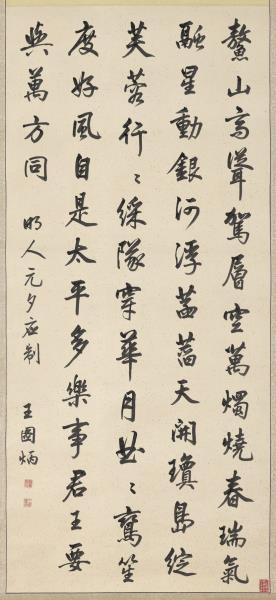 鰲山高聳駕層空萬燭燒春瑞氣
融星動銀河浮菡萏天開瓊島綻
芙蓉行〻綵隊穿華月曲〻鸞笙
度好風自是太平多樂事君王要
與萬方同 明人元夕应制 王國炳